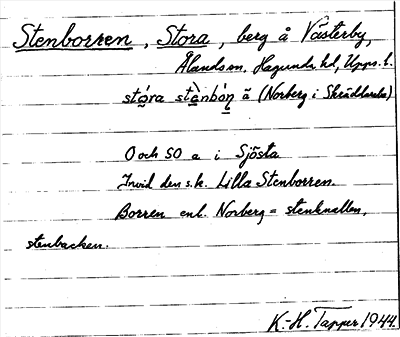 Stenborren, Stora, berg å Västerby,
Ålands sn, Hagunda hd, Upps. l.
stóra stànbón̥ ä (Norberg i Skräddarbo)
O och SO a i Sjösta
Invid den s.k. Lilla Stenborren.
Borren enl. Norberg = stenknallen,
stenbacken.
K.-H. Tapper 1944.